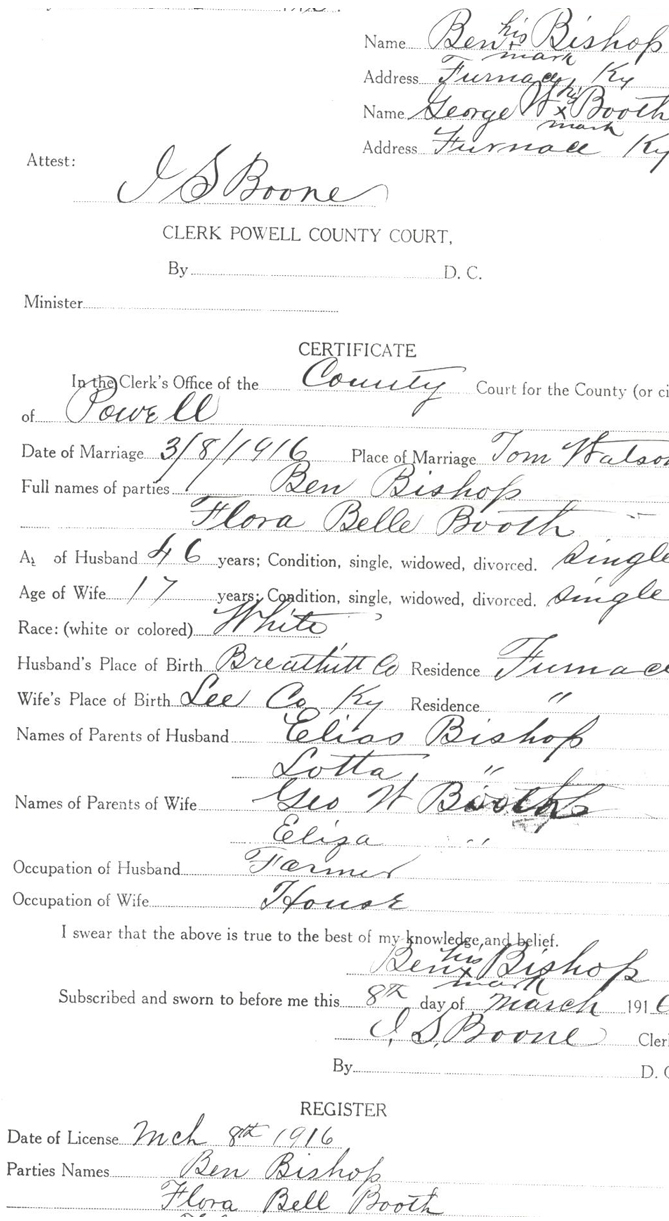 his
Name Ben x Bishop
mark
Address Furnace, Ky
his
Name George W x Booth
mark
Address Furnace Ky
Attest:
J S Boone
CLERK POWELL COUNTY COURT,
By D. C.
Minister
CERTIFICATE
In the Clerk's Office of the County Court for the County (or ci
of Powell
Date of Marriage 3/8/1916 Place of Marriage Tom Watson
Full names of parties Ben Bishop
Flora Belle Booth
of Husband 46 years; Condition, single, widowed, divorced. single
Age of Wife 17 years; Condition, single, widowed, divorced. single
Race: (white or colored) White
Husband's Place of Birth Breathitt Co Residence Furnace
Wife's Place of Birth Lee Co Ky Residence "
Names of Parents of Husband Elias Bishop
Lotta "
Names of Parents of Wife Geo W Booth
Eliza "
Occupation of Husband Farmer
Occupation of Wife House
I swear that the above is true to the best of my knowledge and belief.
his
Ben x Bishop
mark
Subscribed and sworn to before me this 8th day of March 1916
J. S. Boone Cler
By D. C
REGISTER
Date of License Mch 8th 1916
Parties Names Ben Bishop
Flora Bell Booth